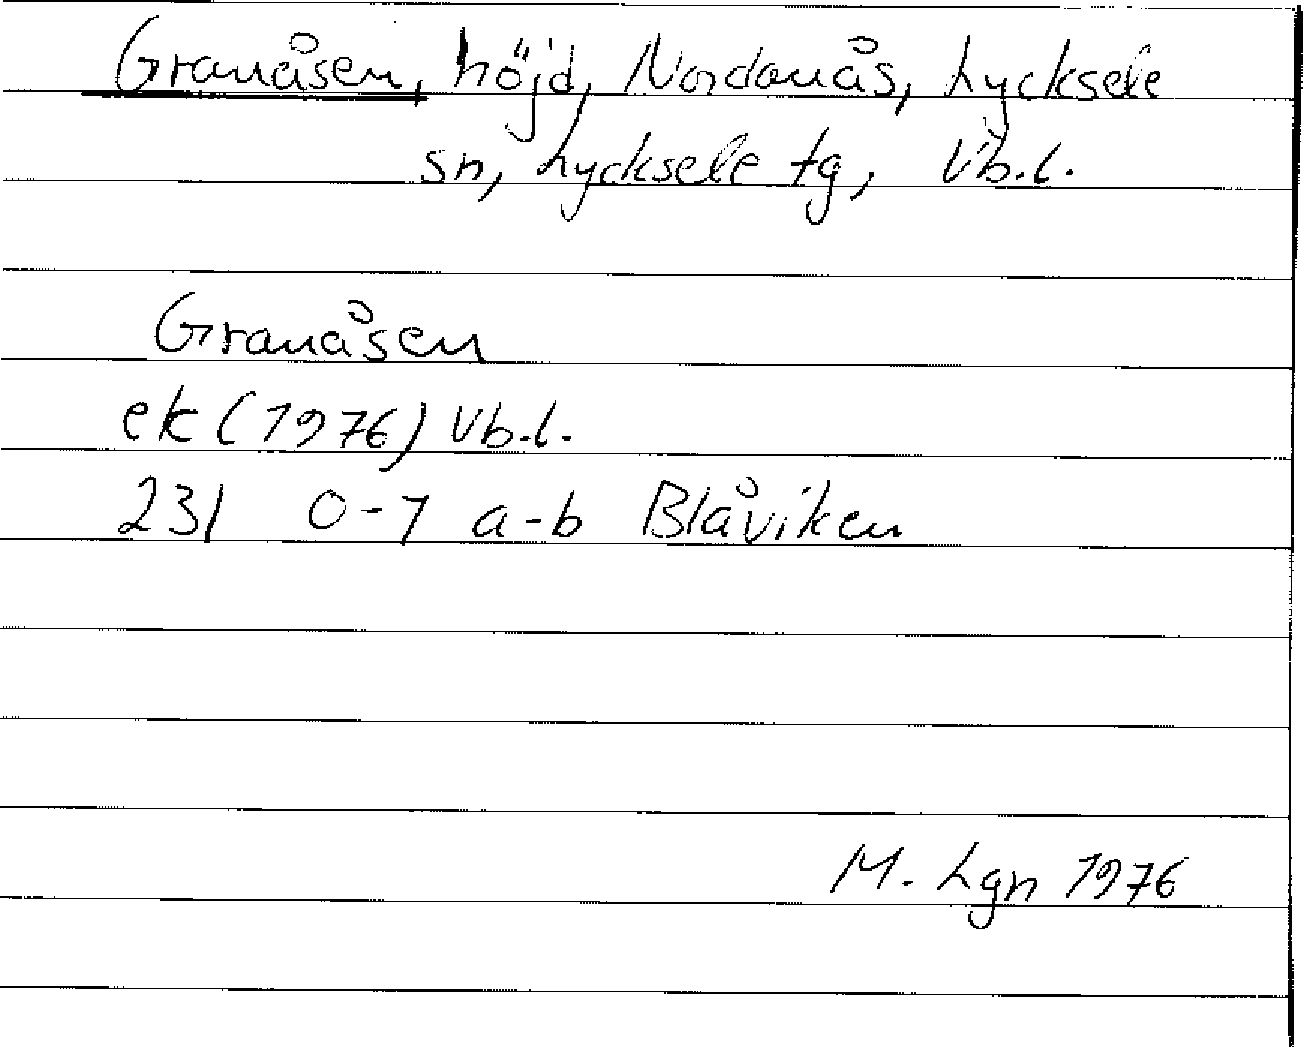 Granåsen, höjd, Nordanås, Lycksele
sn, Lycksele tg, Vb.l.
Granåsen
ek (1976) Vb.l.
231 0-7 a-b Blåviken
M. Lgn 1976